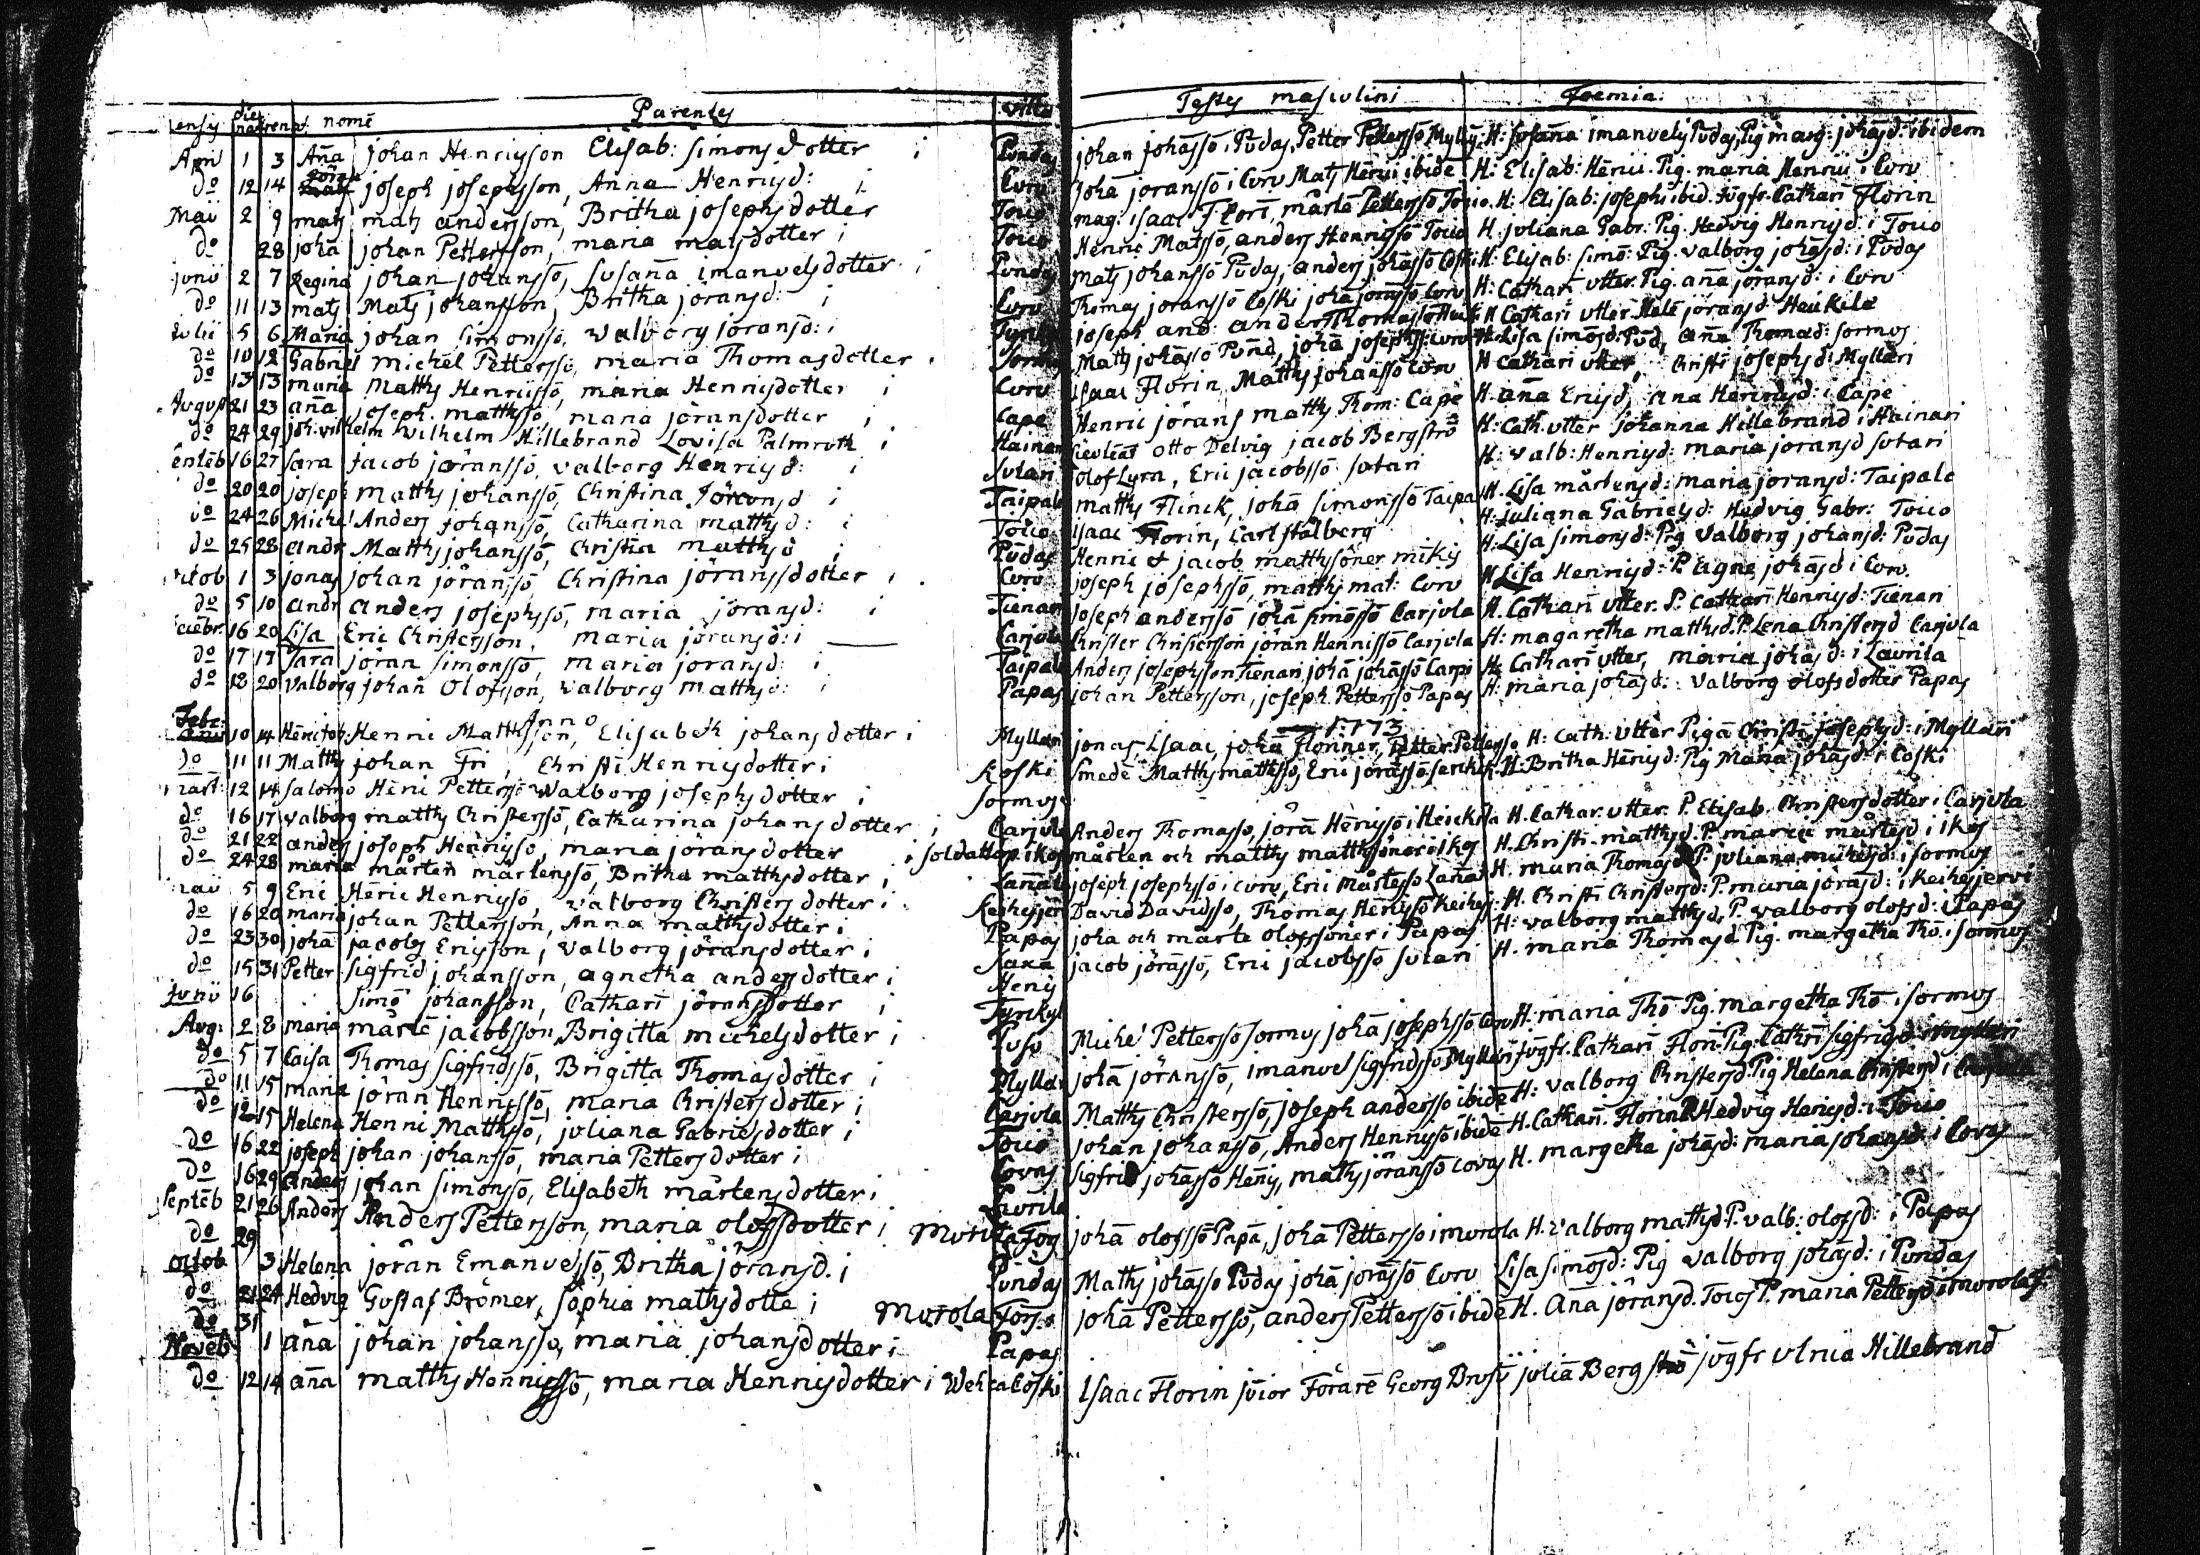 ensy die nat renat nomē Parentes villa Testes masculini Foemia:
Apri 1 3 Aña johan Henricsson Elisab: simonsdotter i Pundas johan johāssō i Pūdas, Petter Pettersso Myllÿ H: Susaña imanuels Pudas, Pig marg: johāsd: ibidem
do 12 14 joseph josephsson, Anna Henricsd: i Curv johā joranssō i Curv Mats Henrici ibidē H: Elisab: Henrici Pig. maria Henrici i Curv
Maii 2 9 mats mats andersson, Britha josephsdotter Toico mag: isaac Flori, mårtē Petterssō Toico. H: Elisab: josephi ibid. Jūgfr. Catharī Florin
do 28 johā johan Pettersson, maria matsdotter i Toico Henric Matssō, anders Henricssō Toico H: juliana Gabr: Pig. Hedvig Henricsd: i Toico
junii 2 7 Regina johan johanssō, susaña imanuelsdotter i Pundas mats johanssō Pūdas, anders johāssō Coski H: Elisab: simō: Pig. valborg johāsd: i Pūdas
do 11 13 mats Mats johansson, Britha jöransd: i Curv Thomas joranssō Coski johā joransso Curv H: Catharī utter. Pig. aña jöransd: i Curv
Julii 5 6 Maria johan simonssō, valborg joransd: i joseph and: anders Thomassō H Catharī utter. Helē jöransd Heukilä
do 10 12 Gabriel michel Petterssō, maria Thomasdotter i Sormus Matts johāssō Pūnd, johā josephss: Curv H: Lisa simōsd: Pūd, aña Thomad: sormus
do 13 13 maria Matths Henricssō, maria Henricsdotter i Curv isaac Florin, Matths johanssō Curv H Catharī utter, Christi josephsd: Myllari
August 21 23 aña joseph matthssō, maria jöransdotter i Cape Henric jörans matths Thom: Cape H. aña Ericsd, ana Henricsd: i Cape
do 24 29 joh: vilhelm Wilhelm Hillebrand Lovisa Palmroth i Hainari Lieutēat Otto Delvig jacob Bergstrō H: Cath. utter johanna Hillebrand i Hainari
entēb 16 27 Sara jacob jöranssō, valborg Henricsd: i Sutari Olof Lyra, Eric jacobssō sutari H: valb: Henricsd: maria joransd sutari
do 20 20 joseph matths johanssō, Christina Jöransd i Taipale matths Flinck, johā simonssō Taipa H. Lisa mårtensd: maria joransd: Taipale
do 24 26 Michel Anders johanssō, Catharina matthsd: i Toico isaac Florin, Carl stålberg H: juliana Gabrielsd: Hedvig Gabr: Toico
do 25 28 andr Matths johanssō, Christia matthsd i Pūdas Henric & jacob matthsöner mikis H: Lisa simonsd: Pig Valborg johansd: Pūdas
ctob 1 3 jonas johan jöranssō, Christina jöranssdotter i Curv joseph josephssō, matths mat: Curv H Lisa Henricsd: P. agne johāsd i Curv.
do 5 10 andr anders josephssō, maria jöransd: i Tienari joseph anderssō johā simōssō Carjula H. Catharī utter. P. Catharī Henricsd: Tienari
16 20 Lisa Eric Christersson, maria jöransd: i Carjula Christer Christersson jöran Henricssō Carjula H: magaretha matthsd. P. Lena Christersd Carjula
do 17 17 Sara jöran simonssō, maria joransd: i Taipale Anders josephsson Tienari johā johāssō Carpi H: Catharī utter, maria johāsd: i Laurila
do 18 20 Valborg johan Olofsson, valborg matthsd: i Papas johan Pettersson, joseph Petterssō Papas H: maria johāsd: Valborg olofsdotter Papas
Anno 1773
Febr: 10 14 Henric Henric Matthsson, Elisabeth johansdotter i Myllari jonas, isaac, johā Floriner, Petter Pettersso H: Cath: utter Pigā Christi josephsd: i Myllari
do 11 11 Matths johan Fri, Christi Henricsdotter i Koski Smedē Matths matthssō, Eric jorāssō H: Britha Hēricsd: Pig Maria johāsd: i Coski
mart: 12 14 Salomo Hēric Petterssō Walborg josephsdotter i sormus
do 16 17 valborg matths Christerssō, Catharina johansdotter i Carjula Anders Thomasso, jörā Hēricssō i Heickila H. Cathar. utter. P. Elisab. Christersdotter i Carjula
do 21 22 anders joseph Heāricsso, maria jöransdotter i soldattop. ikos mårten och matths matthsöner i ikos H. Christi. matthsd. P. maria mårtesd i ikos
do 24 28 maria mårten mårtenssō, Britha matthsdotter i Lañala joseph josephsso i Curv, Eric Mårtesso Laña H. maria Thomasd P. juliana michelsd: i sormus
maii 5 9 Eric Hēric Henricssō, valborg Christersdotter i Keihesjer David Davidsso, Thomas Hēricssō Keihes: H. Christi Christersd: P. maria jörāsd: i Keihesjervi
do 16 20 maria johan Pettersson, Anna mathsdotter i Papas joha och mårte olofssöner i Papas H: valborg matthsd, P. valborg olofsd: i Papas
do 23 30 johā jacobs Ericsson, valborg jöransdotter i Saxa jacob jörāssō, Eric jacobsso sutari H. maria Thomasd Pig. margetha Tho. i sormus
do 15 31 Petter sigfrid johansson, agnetha andersdotter i Henis
junii 16 simō johansson, Catharī jöransdotter i Tyrcky
Aug: 2 8 maria mårtē jacobsson, Brigitta michelsdotter i Puso Michel Petterssō sormus johā josephssō Curv H: maria Thō Pig. margetha Thō: i sormus
do 5 7 Caisa Thomas sigfridssō, Brigitta Thomasdotter i Myllari johā jöranssō, imanuel sigfridssō Myllari jūgfr. Catharī Flori Pig. Cathri sigfrigd i myllari
do 11 15 maria jöran Henricssō, maria Christersdotter i Carjula Matths Christerssō, joseph anderssō ibidē H: valborg Christersd. Pig Helena Christersd i Carjula
do 12 15 Helena Henric Matthssō, juliana Gabrielsdotter i Toico johan johanssō, Anders Henricssō ibidē H. Catharī. Florin P. Hedvig Henricsd: i Toico
do 16 22 joseph johan johanssō, maria Pettersdotter i Covas sigfrid johāssō Henis, maths jöranssō covas H. margetha johāsd: maria johansd: i Covas
do 16 29 Anders johan simonssō, Elisabeth mårtensdotter i Laurila
Septēb 21 26 Anders Anders Pettersson, maria olofsdotter i Murola Fog johā olofssō Papā, johā Petterssō i murola H. valborg mathsd. P. valb: olofsd: i Papas
do 29
Octob 3 Helena jöran Emanuelssō, Britha jöransd. i Pūndas Maths johāsso Pūdas johā jorāssō Curv Lisa simōsd: Pig valborg johāsd: i Pundas
do 21 24 Hedvig Gustaf Brömer, Sophia mathsdotte i Murola Tors. johā Petterssō, anders Petterssō ibidē H. Aña jöransd. Toico P. maria Pettersd i murola
do 31
Novēb 1 aña johan johansso, maria johansdotter i Papas
do 12 14 aña matths Henricssō, maria Henricsdotter i Wehcacoski isaac Florin juior Forarē Georg Brusū julia Bergstrō jūgfr Ulrica Hillebrand